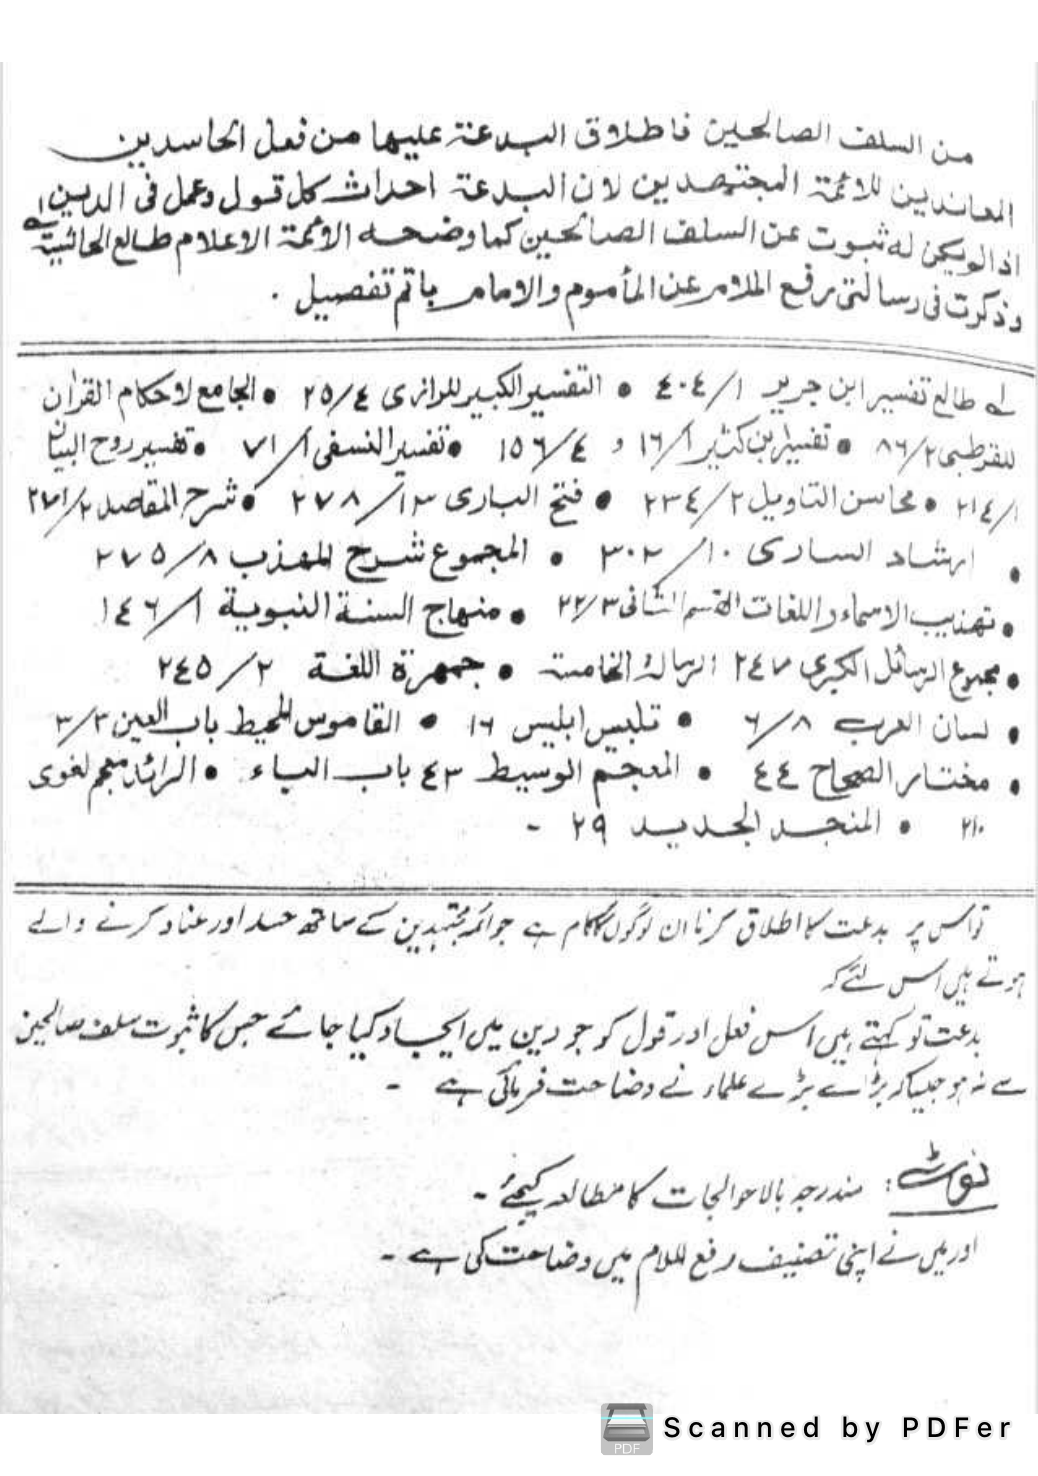 من السلف الصالحين فاطلاق البدعة عليها من فعل الحاسدين
المعاندين للائمة المجتهدين لان البدعة احداث كل قول وعمل فى الدين
اذا لم يكن له ثبوت عن السلف الصالحين كما وضحه الائمة الاعلام طالع الحاشية
وذكرت فى رسالتى رفع الملام عن المأموم والامام باتم تفصيل .
طالع تفسير ابن جرير ١/٤٠٤ • التفسير الكبير للرازى ٤/٢٥ • الجامع لاحكام القران
للقرطبى ٢/٨٦ • تفسير ابن كثير ١/١٦ و ٤/١٥٦ • تفسير النسفى ١/٧١ • تفسير روح البيان
١/٢١٤ • محاسن التاويل ٢/٢٣٤ • فتح البارى ١٣/٢٧٨ • شرح المقاصد ٢/٢٧١
• ارشاد السارى ١٠/٣٠٢ • المجموع شرح المهذب ٨/٢٧٥
• تهذيب الاسماء واللغات القسم الثانى ٣/٢٢ • منهاج السنة النبوية ١/١٤٦
• مجموع الرسائل الكبرى ٢٤٧ الرسالة الخامسة • جمهرة اللغة ٢/٢٤٥
• لسان العرب ٨/٦ • تلبيس ابليس ١٦ • القاموس المحيط باب العين ٣/٣
• مختار الصحاح ٤٤ • المعجم الوسيط ٤٣ باب الباء • الرائد معجم لغوى
٢١٠ • المنجد الجديد ٢٩ -
تو اس پر بدعت کا اطلاق کرنا ان لوگوں کا کام ہے جو ائمہ مجتہدین کے ساتھ حسد اور عناد کرنے والے
ہوتے ہیں اس لئے کہ
بدعت تو کہتے ہیں اس فعل اور قول کو جو دین میں ایجاد کیا جائے جس کا ثبوت سلف صالحین
سے نہ ہو جیسا کہ بڑے بڑے علماء نے وضاحت فرمائی ہے -
نوٹ: مندرجہ بالا حوالجات کا مطالعہ کیجئے -
اور میں نے اپنی تصنیف رفع الملام میں وضاحت کی ہے -
PDF Scanned by PDFer